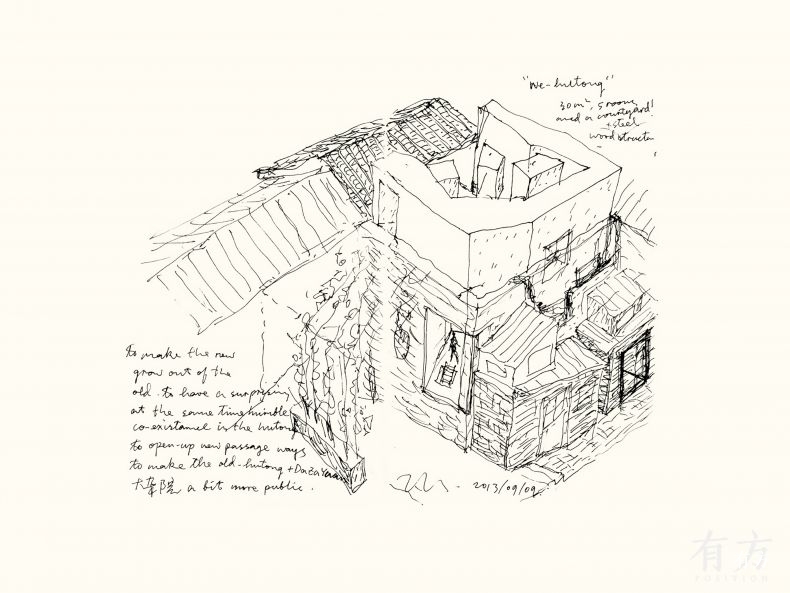 "we-hutong"
30m², 5 room
and a courtyard!
+ steel
wood structu
to make the new
grow out of the
old. to have a surprising
at the same time humble
co-existance in the hutong
to open-up new passage ways
to make the old-hutong + Dazayuan
大杂院 a bit more public.
2013/09/09.
有方
POSITION